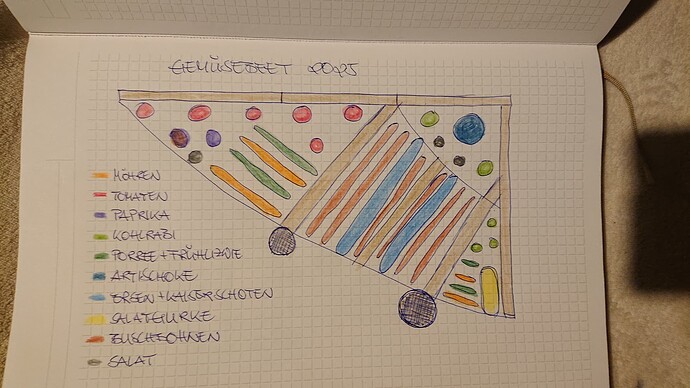 GEMÜSEBEET 2025
MÖHREN
TOMATEN
PAPRIKA
KOHLRABI
PORREE + FRÜHLIZWIE
ARTISCHOKE
ERBSEN + KAISERSCHOTEN
SALATGURKE
BUSCHBOHNEN
SALAT